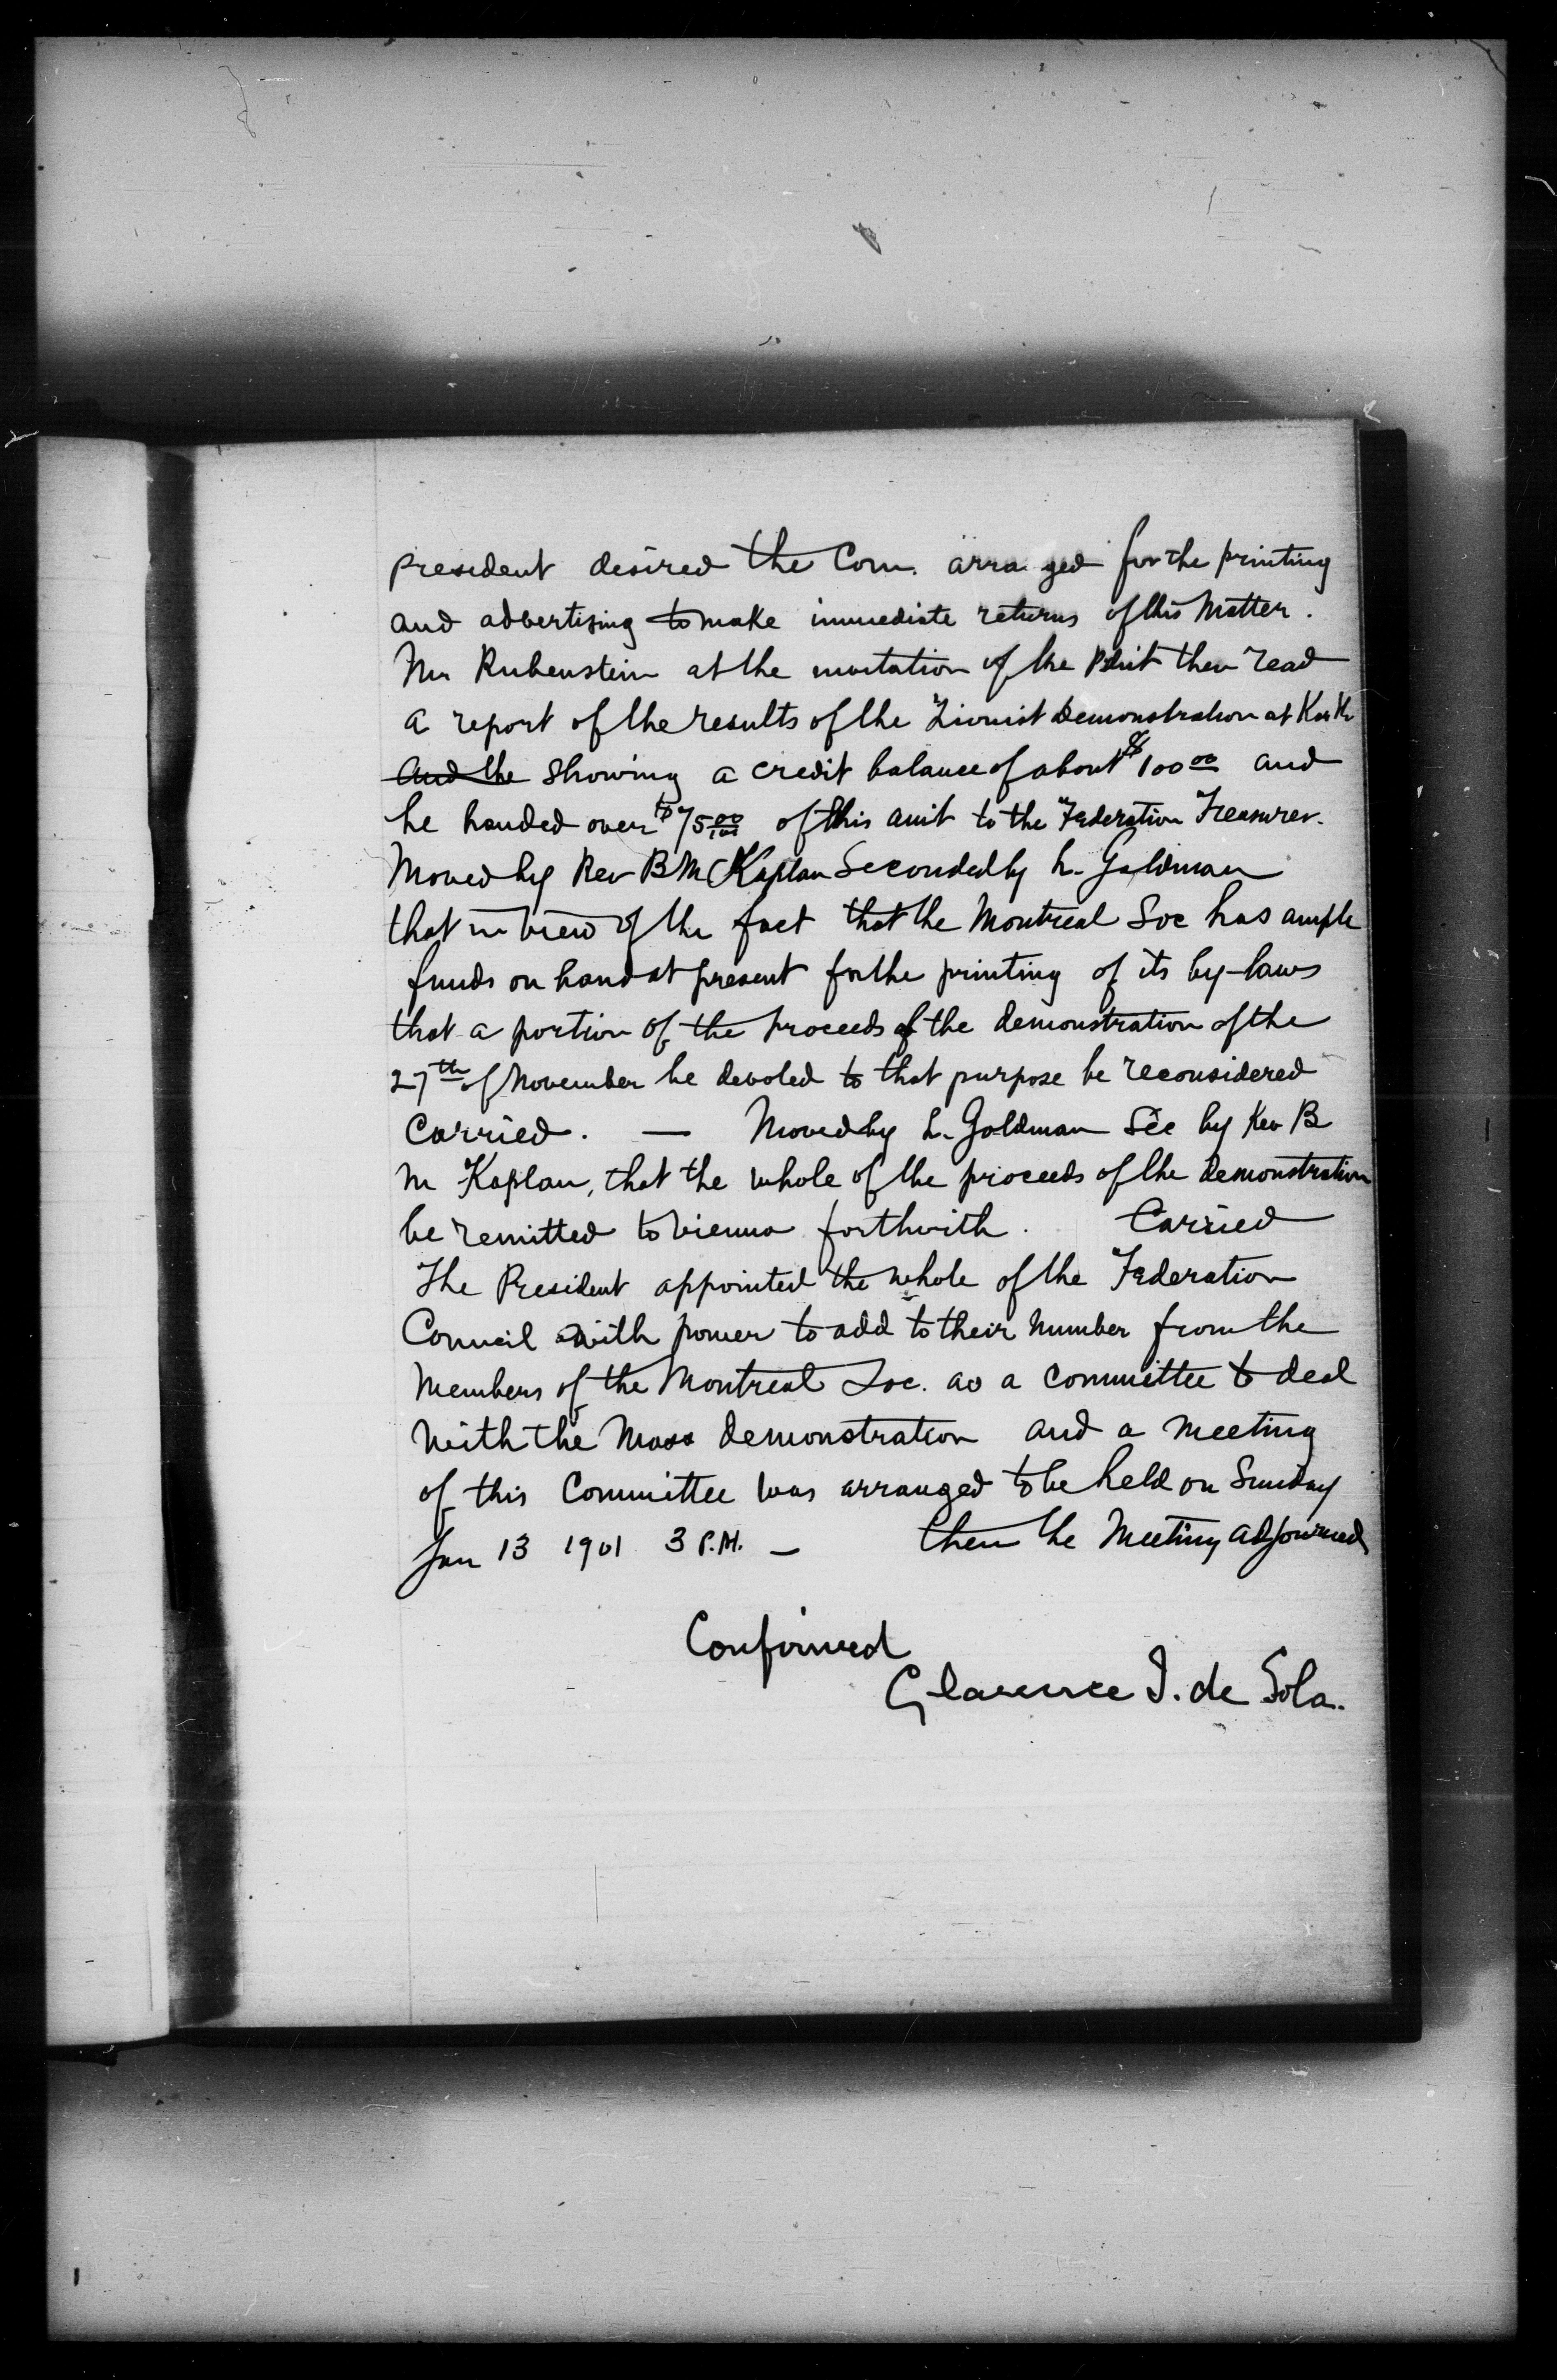 president desired the Com. arranged for the printing
and advertising to make immediate returns of this matter.
Mr Rubenstein at the invitation of the Pdnt then read
a report of the results of the Zionist demonstration at
and the showing a credit balance of about $100 00 and
he handed over $75 00/100 of this amt to the Federation Treasurer.
Moved by Rev B M Kaplan Seconded by L. Goldman
that in view of the fact that the Montreal Soc has ample
funds on hand at present for the printing of its by-laws
that a portion of the proceeds of the demonstration of the
27th of November be devoted to that purpose be reconsidered
Carried. — Moved by L. Goldman Sec by Rev B
M Kaplan, that the whole of the proceeds of the demonstration
be remitted to Vienna forthwith. Carried
The President appointed the whole of the Federation
Council with power to add to their number from the
members of the Montreal Soc. as a committee to deal
with the Mass demonstration and a meeting
of this Committee was arranged to be held on Sunday
Jan 13 1901 3 P.M. — then the Meeting adjourned
Confirmed
Clarence I. de Sola.